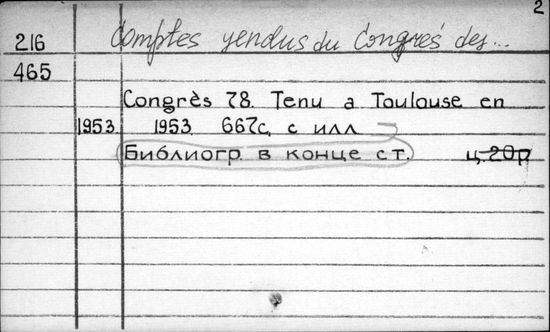 2
216 Comptes rendus du Congrès des...
465
Congrès 78. Tenu a Toulouse en
1953 1953. 667с. с илл
Библиогр. в конце ст. ц. 20р